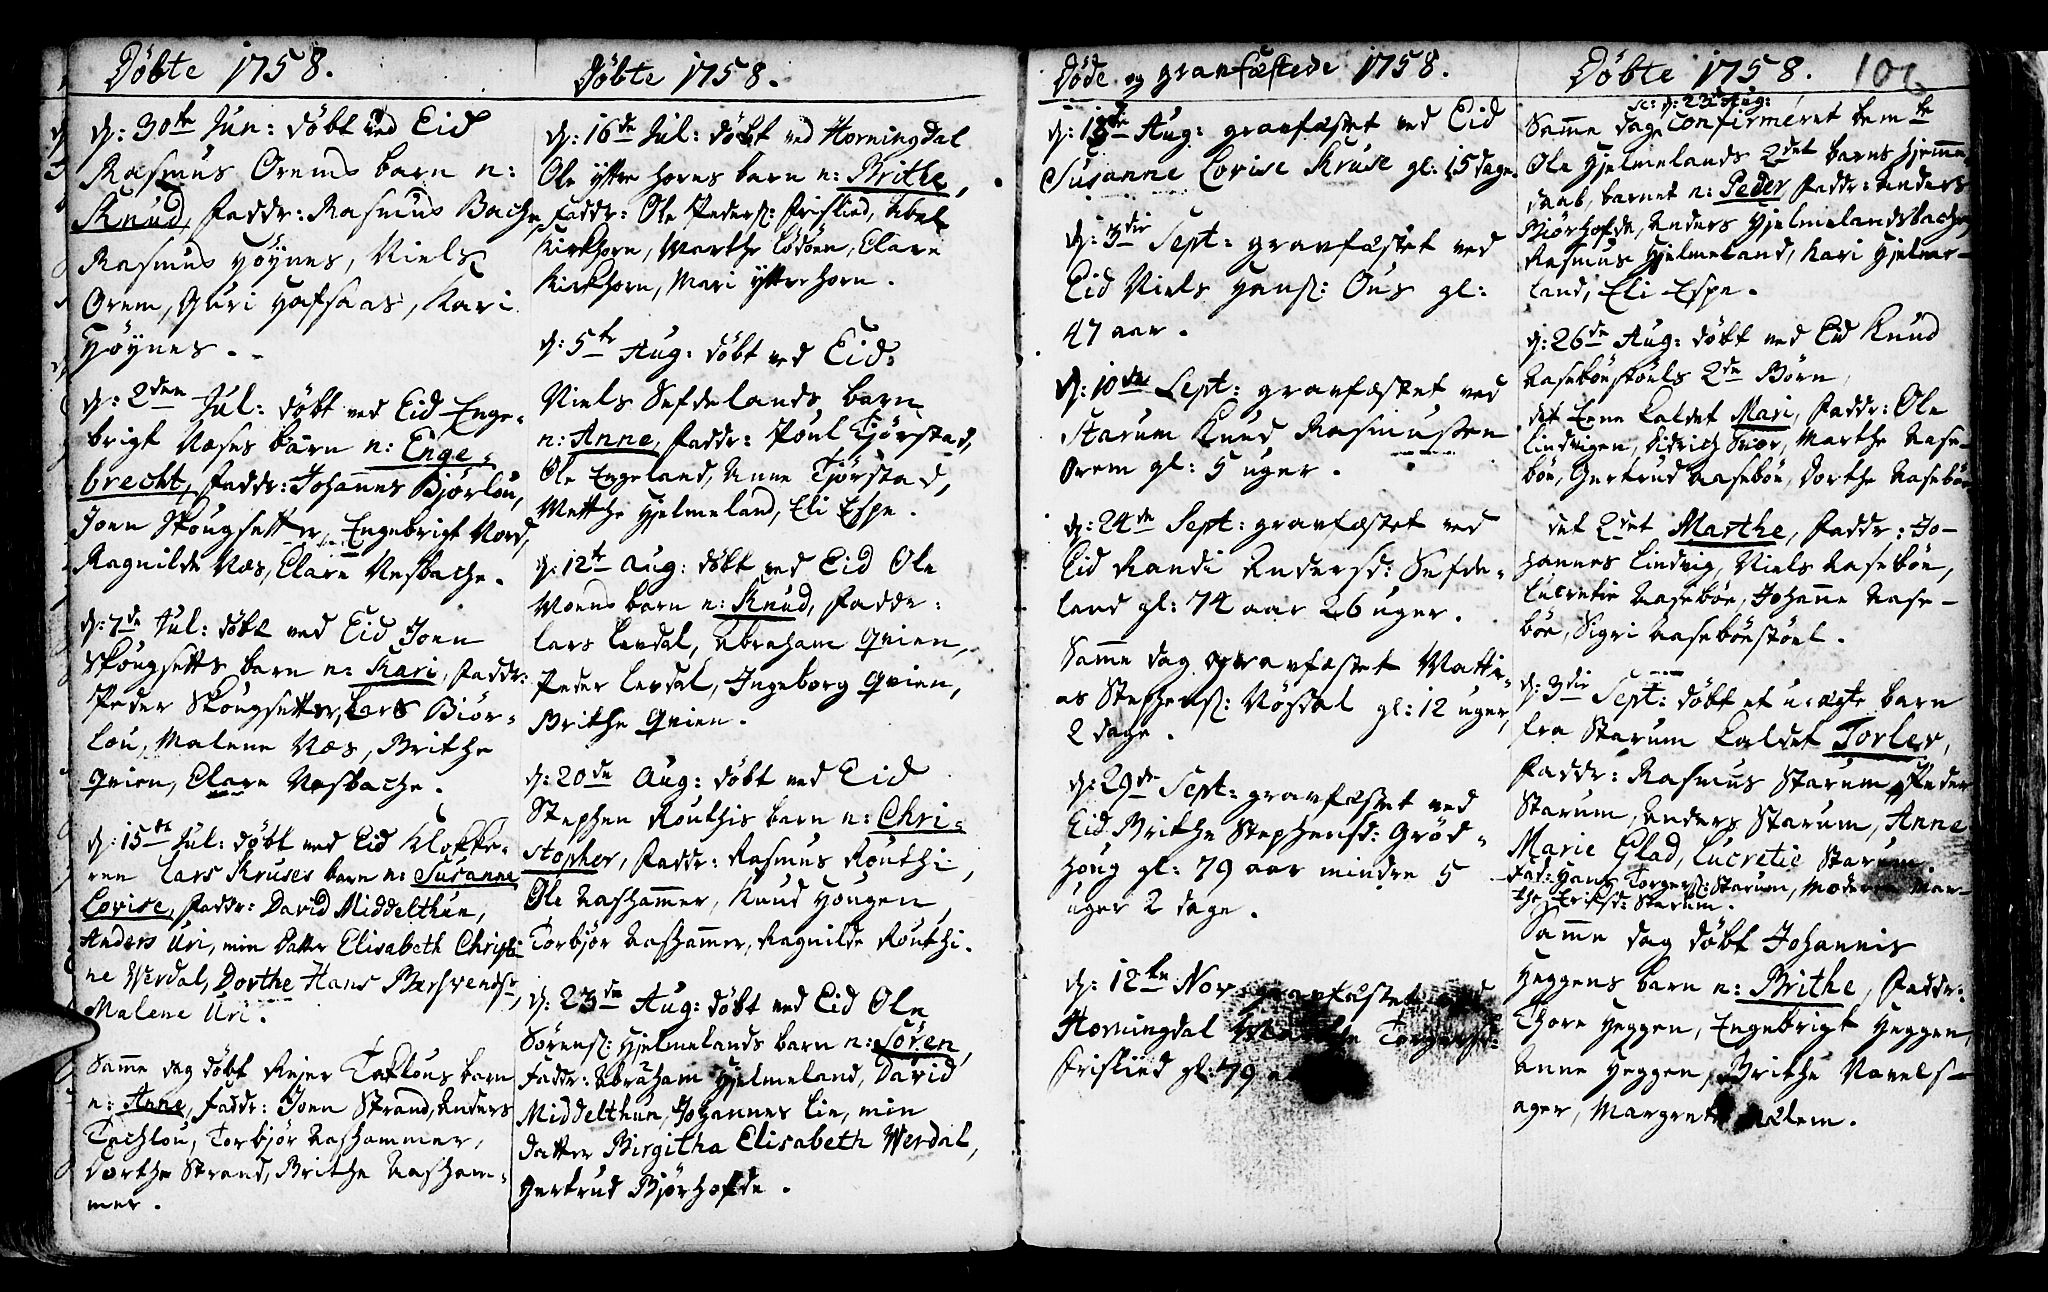 Döbte 1758.
d: 30te Jun: döbt ved Eid
Rasmus Orems barn n:
Knud, Faddr: Rasmus Bache,
Rasmus Höÿnes, Niels
Orem, Guri Hafsaas, Kari
Höÿnes.
d: 2den Jul: döbt ved Eid Enge-
brigt Næses barn n: Enge-
brecht, Faddr: Johannes Bjørlou,
Joen Skougsetter, Engebrigt Nord,
Ragnilde Næs, Clare Nesbache.
d: 7de Jul: döbt ved Eid Joen
Skougsetts barn n: Kari, Faddr:
Peder Skougsetter, Lars Biör-
lou, Malene Næs, Brithe
Qvien, Clare Nesbache.
d: 15de Jul: döbt ved Eid Klokke-
ren Lars Kruses barn n: Susanne
Lovise, Faddr: David Middelthun,
Anders Uri, min Datter Elisabeth Christi-
ne Werdal, Dorthe Hans
Malene Uri.
Samme dag döbt Rejer Taklous barn
n: Anne, Faddr: Joen Strand, Anders
Tachlou, Torbjør Aashammer,
Dorthe Strand, Brithe Aasham-
mer.
Döbte 1758.
d: 16de Jul: döbt ved Horningdal
Ole Ÿttre Horns barn n: Brithe,
Faddr: Ole Peders: Frislied, Abel
Kirkhorn, Marthe Lödöen, Clare
Kirkhorn, Mari Ÿttrehorn.
d: 5te Aug: döbt ved Eid
Niels Sefdelands barn
n: Anne, Faddr: Poul Tjørstad,
Ole Engeland, Anne Tjørstad,
Metthe Hjelmeland, Eli Espe.
d: 12te Aug: döbt ved Eid Ole
Moens barn n: Knud, Faddr:
Lars Levdal, Abraham Qvien,
Peder Levdal, Ingeborg Qvien,
Brithe Qvien.
d: 20de Aug: döbt ved Eid
Stephen Routhis barn n: Chri-
stopher, Faddr: Rasmus Routhi,
Ole Aashammer, Knud Hougen,
Torbjør Aashammer, Ragnilde Routhi.
d: 23de Aug: döbt ved Eid Ole
Sörens: Hjelmelands barn n: Sören,
Faddr: Abraham Hjelmeland, David
Middelthun, Johannes Lie, min
Datter Birgitha Elisabeth Werdal,
Gertrud Bjørhofde.
Döde og gravfæstede 1758.
d: 13de Aug: gravfæstet ved Eid
Susanne Lovise Kruse gl: 15 dage.
d: 3die Sept: gravfæstet ved
Eid Niels Hans: Ous gl:
47 aar.
d: 10de Sept: gravfæstet ved
Starum Knud Rasmussen
Orem gl: 5 uger.
d: 24de Sept: gravfæstet ved
Eid Randi Andersd: Sefde-
land gl: 74 aar 26 uger.
Samme dag gravfæstet Matti-
as Stephens: Nösdal gl: 12 uger,
2 dage.
d: 29de Sept: gravfæstet ved
Eid Brithe Stephensd: Gröd-
houg gl: 79 aar mindre 5
uger 2 dage.
d: 12te Nov gravfæstet ved
Horningdal
Frislied gl: 79
Döbte 1758. 101.
sc: d: 23de Aug:
Samme dag confirmeret bemte
Ole Hjelmelands 2det barns hjemme
daab, barnet n: Peder, Faddr: Anders
Biörhofde, Anders Hjelmelandsbache,
Rasmus Hjelmeland, Kari Hjelme-
land, Eli Espe.
d: 26de Aug: döbt ved Eid Knud
Aaseböestöels 2de Börn,
det Eene kaldet Mari, Faddr: Ole
Lindvigen, Didrich Svor, Marthe Aase-
böe, Gertrud Aaseböe, Dorthe Aaseböe
det 2det Marthe, Faddr: Jo-
hannes Lindvig, Niels Aaseböe,
Lucretie Aaseböe, Johanne Aase-
böe, Sigri Aaseböestöel.
d: 3die Sept: döbt et uægte barn
fra Starum kaldet Torler,
Faddr: Rasmus Starum, Peder
Starum, Anders Starum, Anne
Marie Glad, Lucretie Starum
Fad: Hans Torgers: Starum, Moderen Mar-
the Eriksd: Starum.
Samme dag döbt Johannis
Heggens barn n: Brithe, Faddr:
Thore Heggen, Engebrigt Heggen,
Anne Heggen, Brithe Navels-
ager, Margrete Mælem.